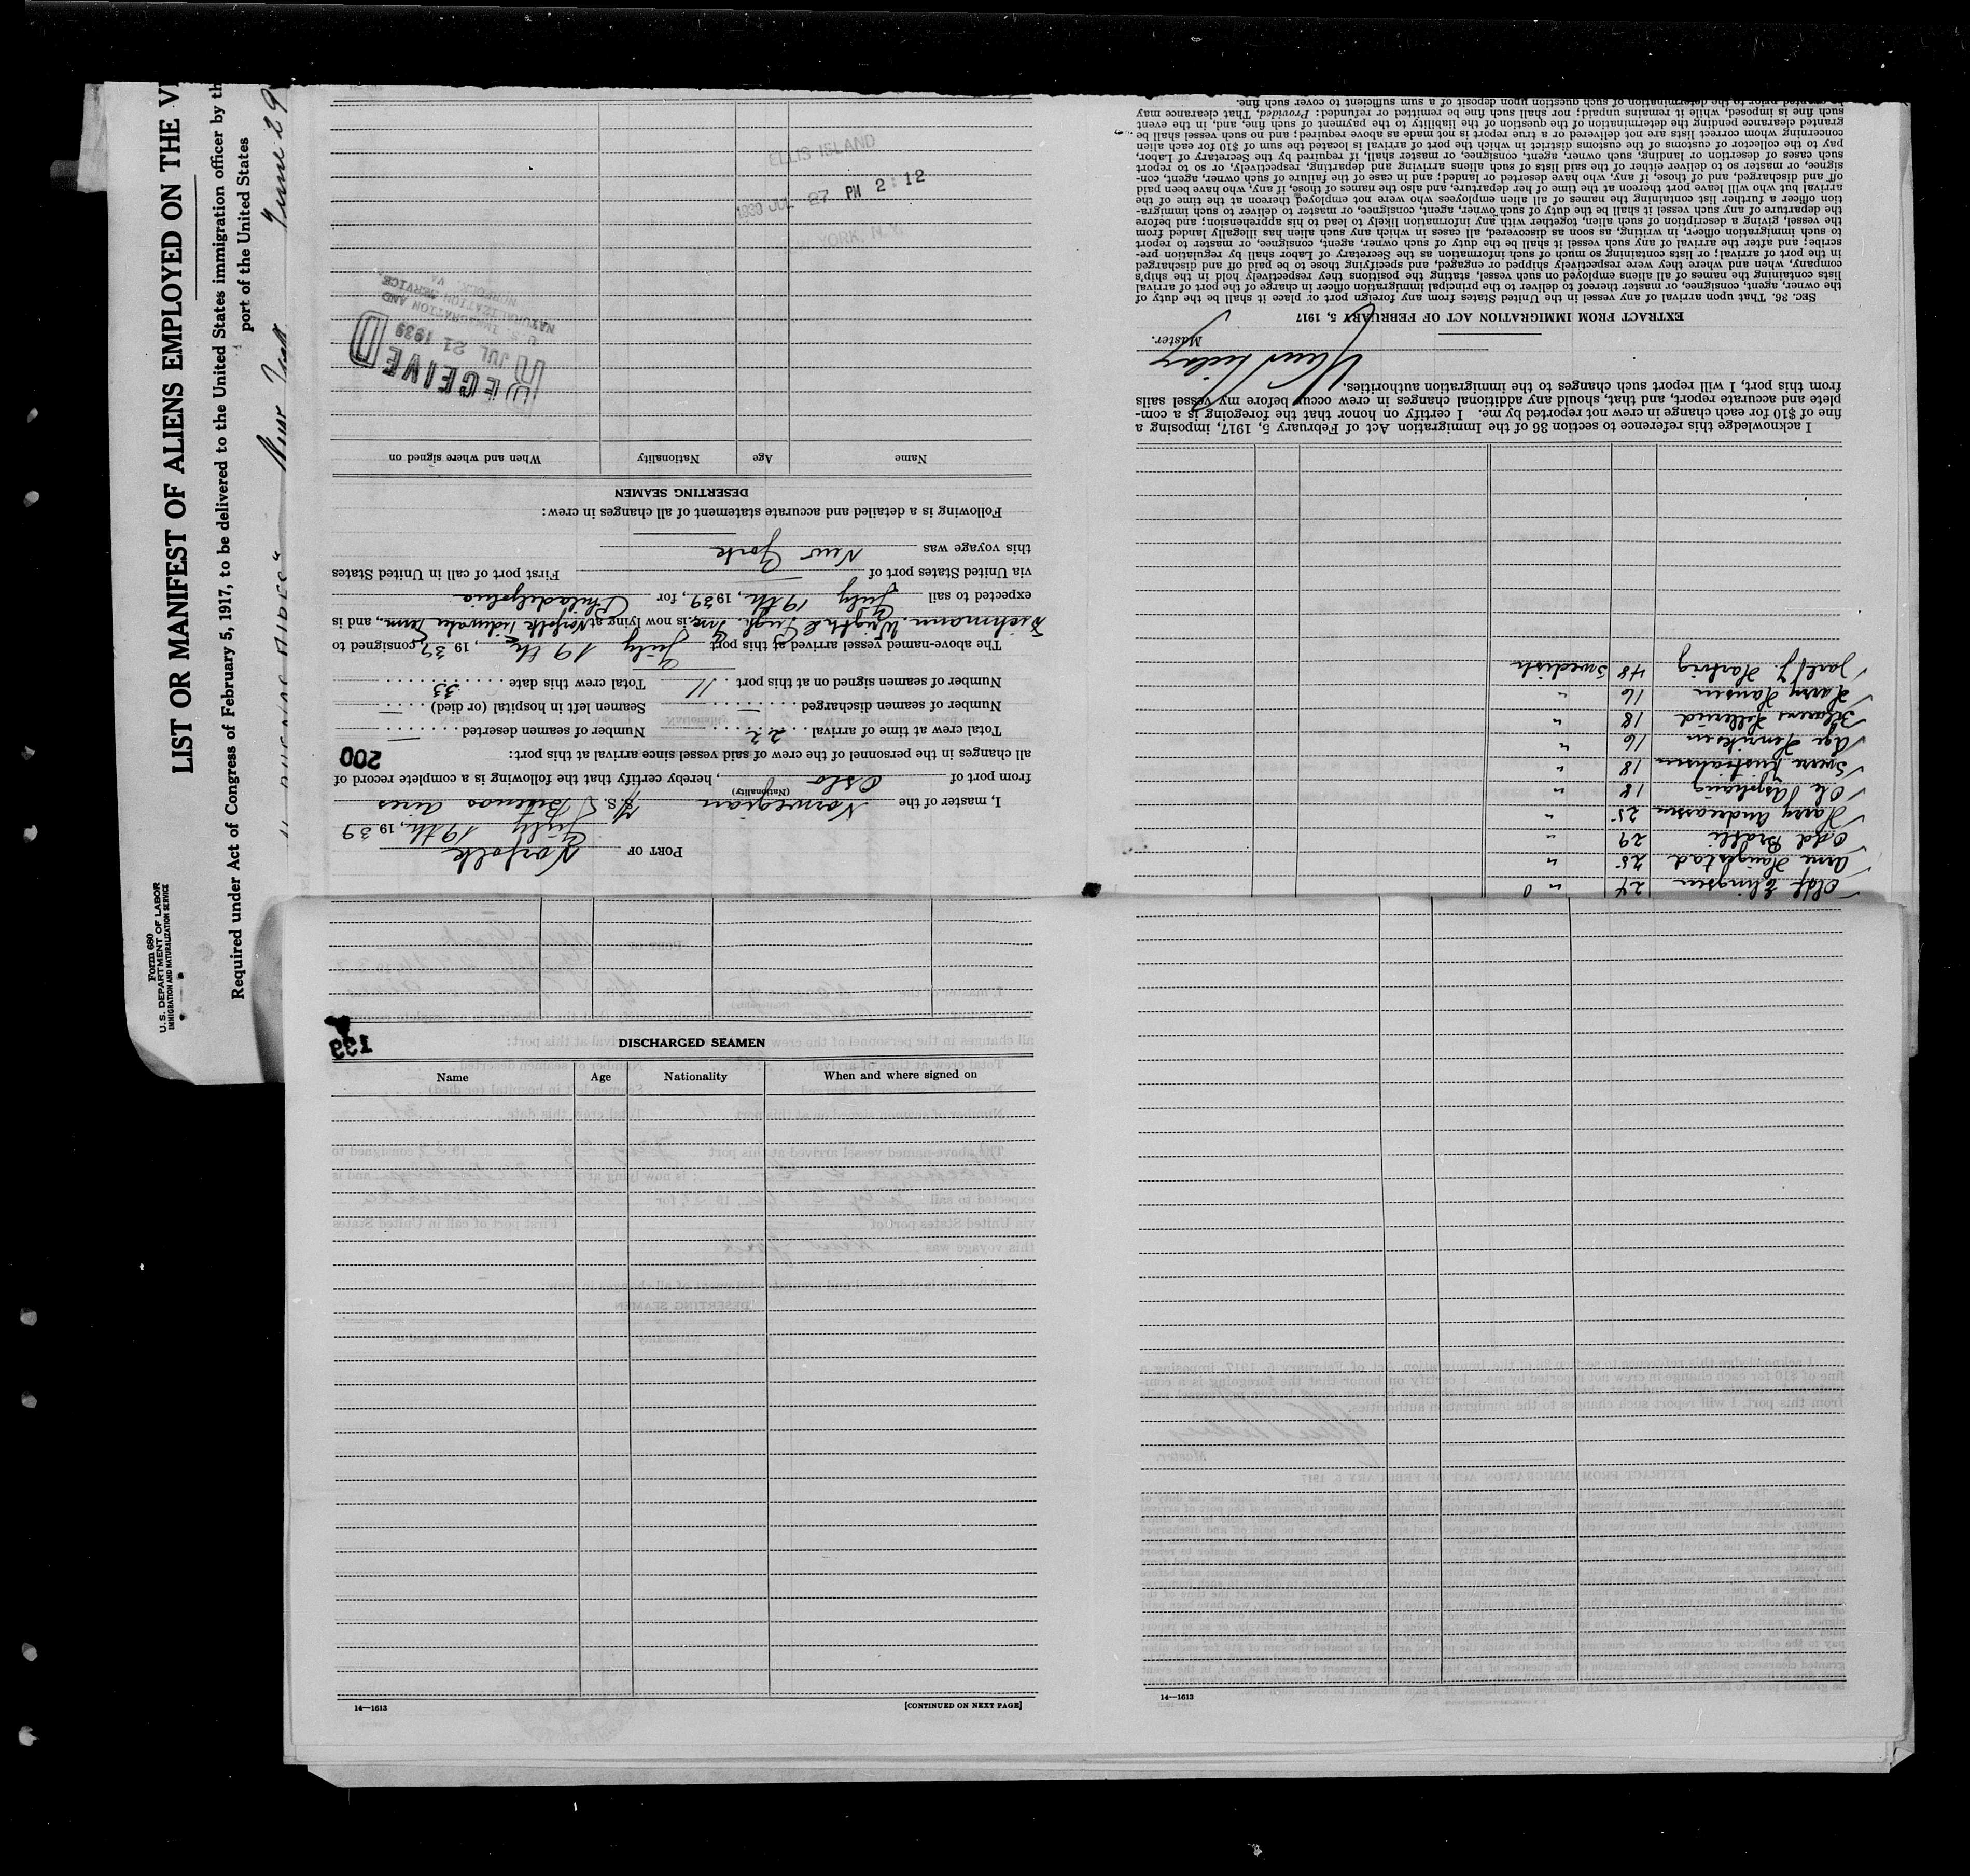 Form 680
U.S. DEPARTMENT OF LABOR
IMMIGRATION AND NATURALIZATION SERVICE
LIST OR MANIFEST OF ALIENS EMPLOYED ON THE
Required under Act of Congress of February 5, 1917, to be delivered to the United States immigration officer by
port of the United States
New York June 29
PORT OF Norfolk
July 19th, 1939
I, master of the Norwegian M/S. Buenos Aires
(Nationality)
from port of Oslo, hereby certify that the following is a complete record of
all changes in the personnel of the crew of said vessel since arrival at this port:
200
Total crew at time of arrival 22 Number of seamen deserted —
Number of seamen discharged — Seamen left in hospital (or died) —
Number of seamen signed on at this port 11 Total crew this date 33
The above-named vessel arrived at this port July 19th, 1939, consigned to
Dichmann, Wright & Pugh, Inc., is now lying at Norfolk Tidewater Term., and is
expected to sail July 19th, 1939, for Philadelphia
via United States port of — First port of call in United States
this voyage was New York
Following is a detailed and accurate statement of all changes in crew:
DESERTING SEAMEN
Name Age Nationality When and where signed on
RECEIVED
JUL 21 1939
U. S. IMMIGRATION AND
NATURALIZATION SERVICE
NORFOLK, VA.
NEW YORK, N.Y.
1939 JUL 27 PM 2:12
ELLIS ISLAND
Olaf Ellingsen 24 "
Arne Haugstad 25 "
Odd Bratli 29 "
Harry Andreassen 25 "
Ole Asphaug 18 "
Sverre Kristiansen 18 "
Age Henriksen 16 "
18 "
Harry Hansen 16 "
Jarl J. Hartvig 48 Swedish
I acknowledge this reference to section 36 of the Immigration Act of February 5, 1917, imposing a
fine of $10 for each change in crew not reported by me. I certify on honor that the foregoing is a com-
plete and accurate report, and that, should any additional changes in crew occur before my vessel sails
from this port, I will report such changes to the immigration authorities.
Master.
EXTRACT FROM IMMIGRATION ACT OF FEBRUARY 5, 1917
SEC. 36. That upon arrival of any vessel in the United States from any foreign port or place it shall be the duty of
the owner, agent, consignee, or master thereof to deliver to the principal immigration officer in charge of the port of arrival
lists containing the names of all aliens employed on such vessel, stating the positions they respectively hold in the ship's
company, when and where they were respectively shipped or engaged, and specifying those to be paid off and discharged
in the port of arrival; or lists containing so much of such information as the Secretary of Labor shall by regulation pre-
scribe; and after the arrival of any such vessel it shall be the duty of such owner, agent, consignee, or master to report
to such immigration officer, in writing, as soon as discovered, all cases in which any such alien has illegally landed from
the vessel, giving a description of such alien, together with any information likely to lead to his apprehension; and before
the departure of any such vessel it shall be the duty of such owner, agent, consignee, or master to deliver to such immigra-
tion officer a further list containing the names of all alien employees who were not employed thereon at the time of the
arrival but who will leave port thereon at the time of her departure, and also the names of those, if any, who have been paid
off and discharged, and of those, if any, who have deserted or landed; and in case of the failure of such owner, agent, con-
signee, or master so to deliver either of the said lists of such aliens arriving and departing, respectively, or so to report
such cases of desertion or landing, such owner, agent, consignee, or master, shall, if required by the Secretary of Labor,
pay to the collector of customs of the customs district in which the port of arrival is located the sum of $10 for each alien
concerning whom correct lists are not delivered or a true report is not made as above required; and no such vessel shall be
granted clearance pending the determination of the question of the liability to the payment of such fine, and, in the event
such fine is imposed, while it remains unpaid; nor shall such fine be remitted or refunded: Provided, That clearance may
be granted prior to the determination of such question upon deposit of a sum sufficient to cover such fine.
199
DISCHARGED SEAMEN
Name Age Nationality When and where signed on
14—1613
[CONTINUED ON NEXT PAGE]
14—1613